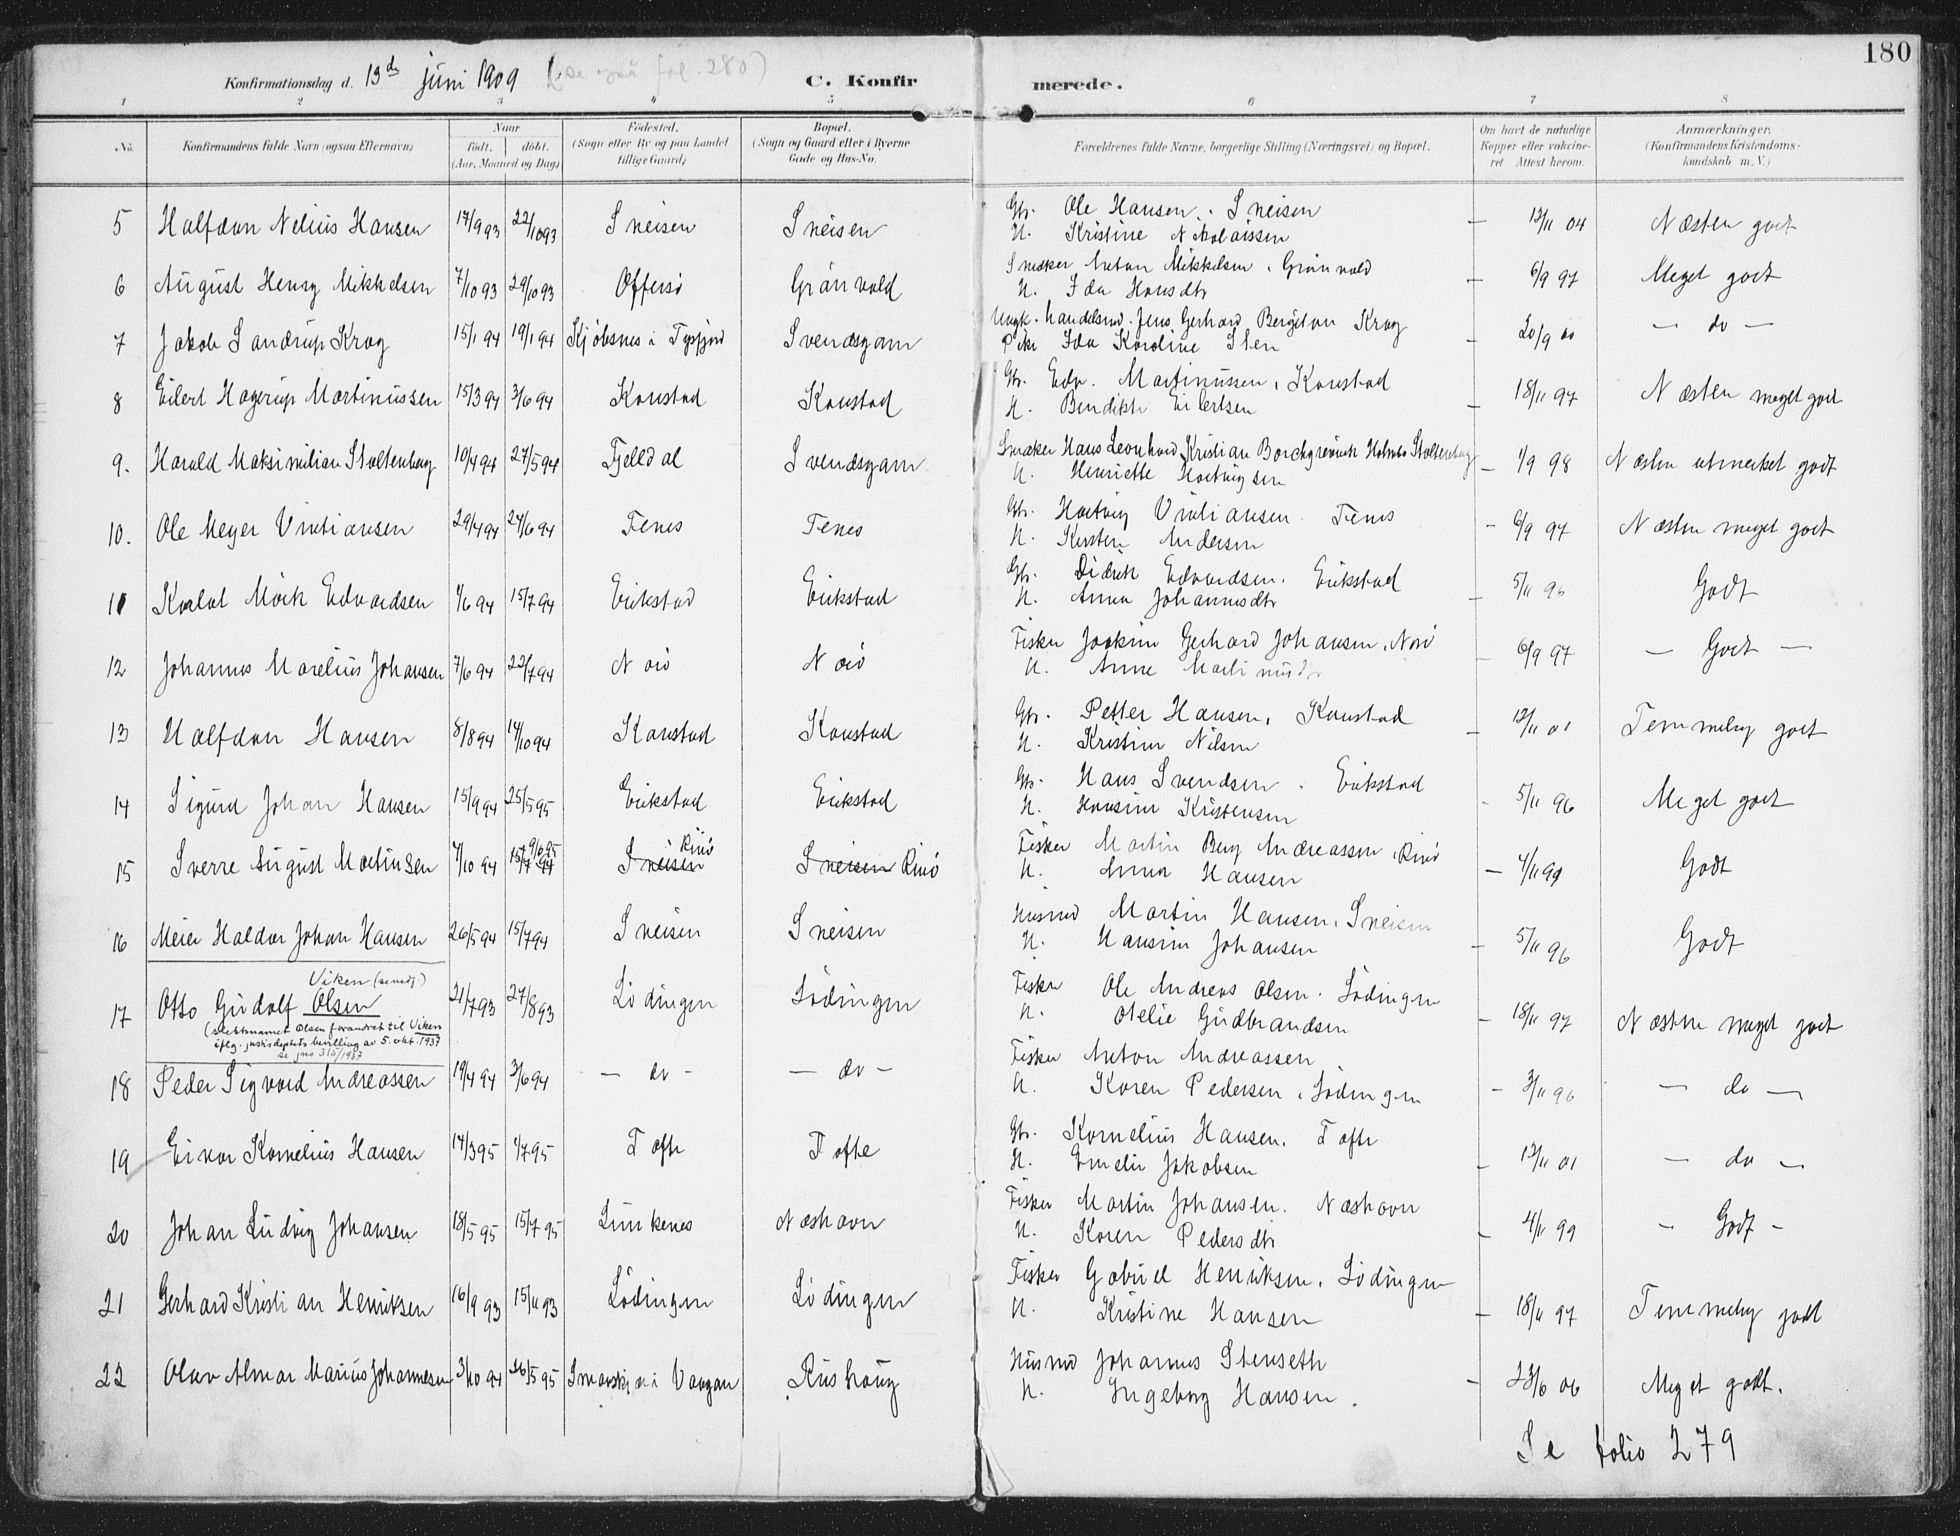 180
Konfirmationsdag d. 13de juni 1909 (se også fol. 280) C. Konfirmerede.
1 2 3 4 5 6 7 8
No. Konfirmandens fulde Navn (ogsaa Efternavn) Naar født. døbt. (Aar, Maaned og Dag) Fødested. (Sogn eller By og paa Landet tillige Gaard) Bopæl. (Sogn og Gaard eller i Byerne Gade og Hus-No. Forældrenes fulde Navne, borgerlige Stilling (Næringsvei) og Bopæl. Om havt de naturlige Kopper eller vaccineret Attest herom. Anmærkninger. (Konfirmandens Kristendomskundskab m. V.)
5 Halfdan Nelius Hansen 17/9 93 22/10 93 Sneisen Sneisen Gb. Ole Hansen. Sneisen – 12/11 04 Næsten godt
H. Kristine Nikolaissen
6 August Henry Mikkelsen 7/10 93 29/10 93 Offersø Grønvold Snedker Anton Mikkelsen, Grønvold – 6/9 97 Meget godt
H. Ida Hansdtr
7 Jakob Sandrup Krog 15/1 94 19/1 94 Kjøbsnes i Tysfjord Svendsgam Ungk. handelsmd. Jens Gerhard Bergiton Krog – 20/9 00 – do –
Pike Ida Karoline Sten
8 Eilert Hagerup Martinussen 15/3 94 3/6 94 Kanstad Kanstad Gb. Edv. Martinussen, Kanstad – 18/11 97 Næsten meget godt
H. Bendikte Eilertsen
9. Harald Maksimilian Stoltenberg 10/4 94 27/5 94 Fjelldal Svendsgam Snedker Hans Leonhard Kristian Borchgrevink Holmbo Stoltenberg – 1/9 98 Næsten utmerket godt
H. Henriette Hartvigsen
10. Ole Meyer Kristiansen 29/4 94 24/6 94 Tenes Tenes Gb. Hartvig Kristiansen. Tenes – 6/9 97 Næsten meget godt
H. Kirsten Andersen
11 Mørk Edvardsen 1/6 94 15/7 94 Erikstad Erikstad Gb. Didrik Edvardsen. Erikstad – 5/11 96 Godt
H. Anna Johannesdtr
12 Johannes Marelius Johansen 7/6 94 22/7 94 Fisker Joakim Gerhard Johansen, – 6/9 97 – Godt –
H. Anne
13 Halfdan Hansen 8/8 94 14/10 94 Kanstad Kanstad Gb. Petter Hansen, Kanstad – 12/11 01 Temmelig godt
H. Kristine Nilsen
14 Sigurd Johan Hansen 15/9 94 25/5 95 Erikstad Erikstad Gb. Hans Svendsen. Erikstad – 5/11 96 Meget godt
H. Hansine Kristensen
15 Sverre August Martinsen 7/10 94 9/6 95 15/7 94 Rinø Sneisen Sneisen Rinø Fisker Martin Berg Andreassen, Rinø – 4/11 99 Godt
H. Anna Hansen
16 Meier Haldor Johan Hansen 26/5 94 15/7 94 Sneisen Sneisen Husmd Martin Hansen, Sneisen – 5/11 96 Godt
H. Hansine Johansen
Viken (se nedf)
17 Otto Gudolf Olsen 21/7 93 27/8 93 Lødingen Lødingen Fisker Ole Andreas Olsen. Lødingen – 18/11 97 Næsten meget godt
(slektsnamnet Olsen forandret til Viken iflg. justisdeptets bevilling av 5. okt. 1937 se jno 315/1937
H. Otelie Gudbrandsen
18 Peder Sigvard Andreassen 19/4 94 3/6 94 – do – – do – Fisker Anton Andreassen – 3/11 96 – do –
H. Karen Pedersen, Lødingen
19 Einar Kornelius Hansen 14/3 95 1/7 95 Tofte Tofte Gb. Kornelius Hansen. Tofte – 12/11 01 – do –
H. Emelie Jakobsen
20 Johan Ludvig Johansen 18/5 95 15/7 95 Lunkenes Næshavn Fisker Martin Johansen. Næshavn – 4/11 99 – Godt –
H. Karen Pedersdtr
21 Gerhard Kristian Henriksen 16/9 93 15/11 93 Lødingen Lødingen Fisker Gabriel Henriksen. Lødingen – 18/11 97 Temmelig godt
H. Kristine Hansen
22 Olav Almar Marius Johannesen 3/10 94 26/5 95 i Vaagan Rushaug Husmd Johannes Stenseth – 23/6 06 Meget godt.
H. Ingeborg Hansen.
Se folio 279